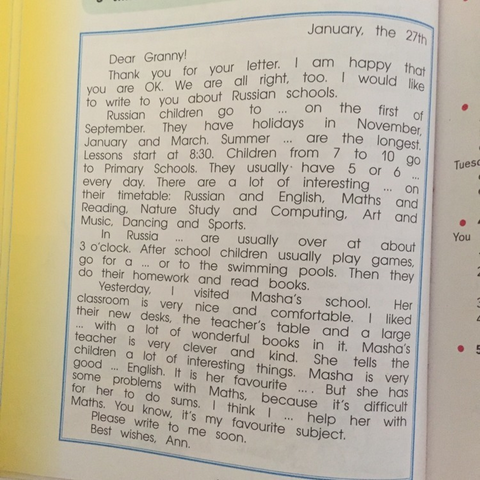 January, the 27th
Dear Granny!
Thank you for your letter. I am happy that
you are OK. We are all right, too. I would like
to write to you about Russian schools.
Russian children go to ... on the first of
September. They have holidays in November,
January and March. Summer ... are the longest.
Lessons start at 8:30. Children from 7 to 10 go
to Primary Schools. They usually have 5 or 6 ...
every day. There are a lot of interesting ... on
their timetable: Russian and English, Maths and
Reading, Nature Study and Computing, Art and
Music, Dancing and Sports.
In Russia ... are usually over at about
3 o'clock. After school children usually play games,
go for a ... or to the swimming pools. Then they
do their homework and read books.
Yesterday, I visited Masha's school. Her
classroom is very nice and comfortable. I liked
their new desks, the teacher's table and a large
... with a lot of wonderful books in it. Masha's
teacher is very clever and kind. She tells the
children a lot of interesting things. Masha is very
good ... English. It is her favourite ... . But she has
some problems with Maths, because it's difficult
for her to do sums. I think I ... help her with
Maths. You know, it's my favourite subject.
Please write to me soon.
Best wishes, Ann.
You